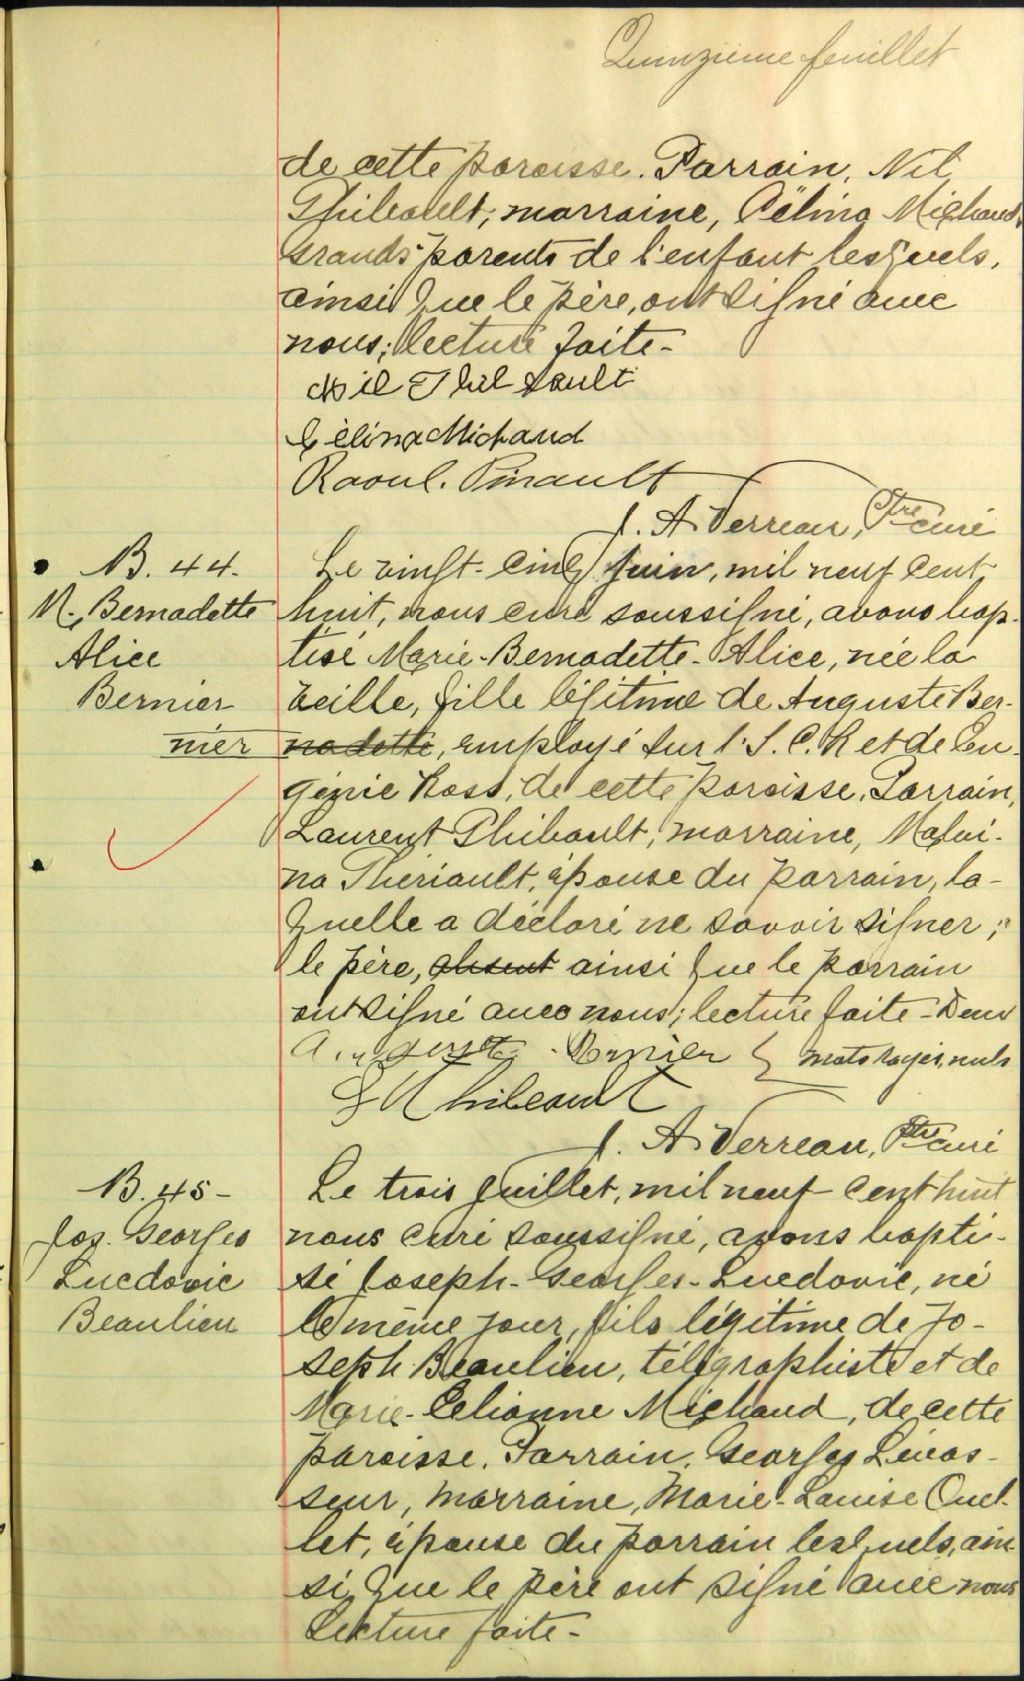 Quinzième feuillet
de cette paroisse. Parrain, Nil
Thibault, marraine, Célina Michaud,
grands-parents de l'enfant lesquels,
ainsi que le père, ont signé avec
nous; lecture faite-
Nil Thibault
Célina Michaud
Raoul. Pinault
J. A. Verreau, Ptre curé
B. 44.
M. Bernadette
Alice
Bernier
Le vingt-cinq juin, mil neuf cent
huit, nous curé soussigné, avons bap-
tisé Marie-Bernadette-Alice, née la
veille, fille légitime de Auguste Ber-
nier nadette, employé sur l'I. C. R et de Eu-
génie Ross, de cette paroisse. Parrain,
Laurent Thibault, marraine, Malvi-
na Thériault, épouse du parrain, la-
quelle a déclaré ne savoir signer;
le père, absent ainsi que le parrain
ont signé avec nous; lecture faite - Deux
mots rayés, nuls
Auguste Bernier
L Thibeault
J. A. Verreau, Ptre curé
B. 45-
Jos. Georges
Luedovic
Beaulieu
Le trois juillet, mil neuf cent huit
nous curé soussigné, avons bapti-
sé Joseph-Georges-Luedovic, né
le même jour, fils légitime de Jo-
seph Beaulieu, télégraphiste et de
Marie-Célianne Michaud, de cette
paroisse. Parrain, Georges Lévas-
seur, marraine, Marie-Louise Ouel-
let, épouse du parrain lesquels, ain-
si que le père ont signé avec nous
Lecture faite-